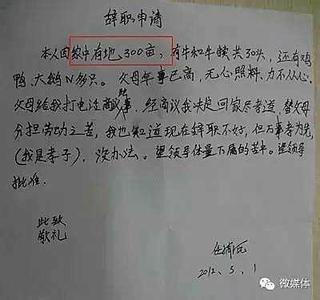 辞职申请
本人因家中有地300亩，有牛和牛犊共30头，还有鸡
鸭、大鹅N多只。父母年事已高，无心照料，力不从心。
父母给我打电话商议，经商议我决定回家尽孝道，替父母
分担劳动之苦，我也知道现在辞职不好，但万事孝为先
(我是孝子)，没办法。望领导体量下属的苦中。望领导
批准。
此致
敬礼
2012、5、1
微媒体